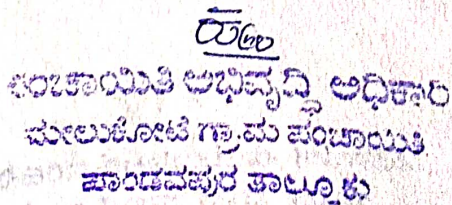 ಪಂಚಾಯಿತಿ ಅಭಿವೃದ್ಧಿ ಅಧಿಕಾರಿ
ಮೇಲುಕೋಟೆ ಗ್ರಾಮ ಪಂಚಾಯಿತಿ
ಪಾಂಡವಪುರ ತಾಲ್ಲೂಕು